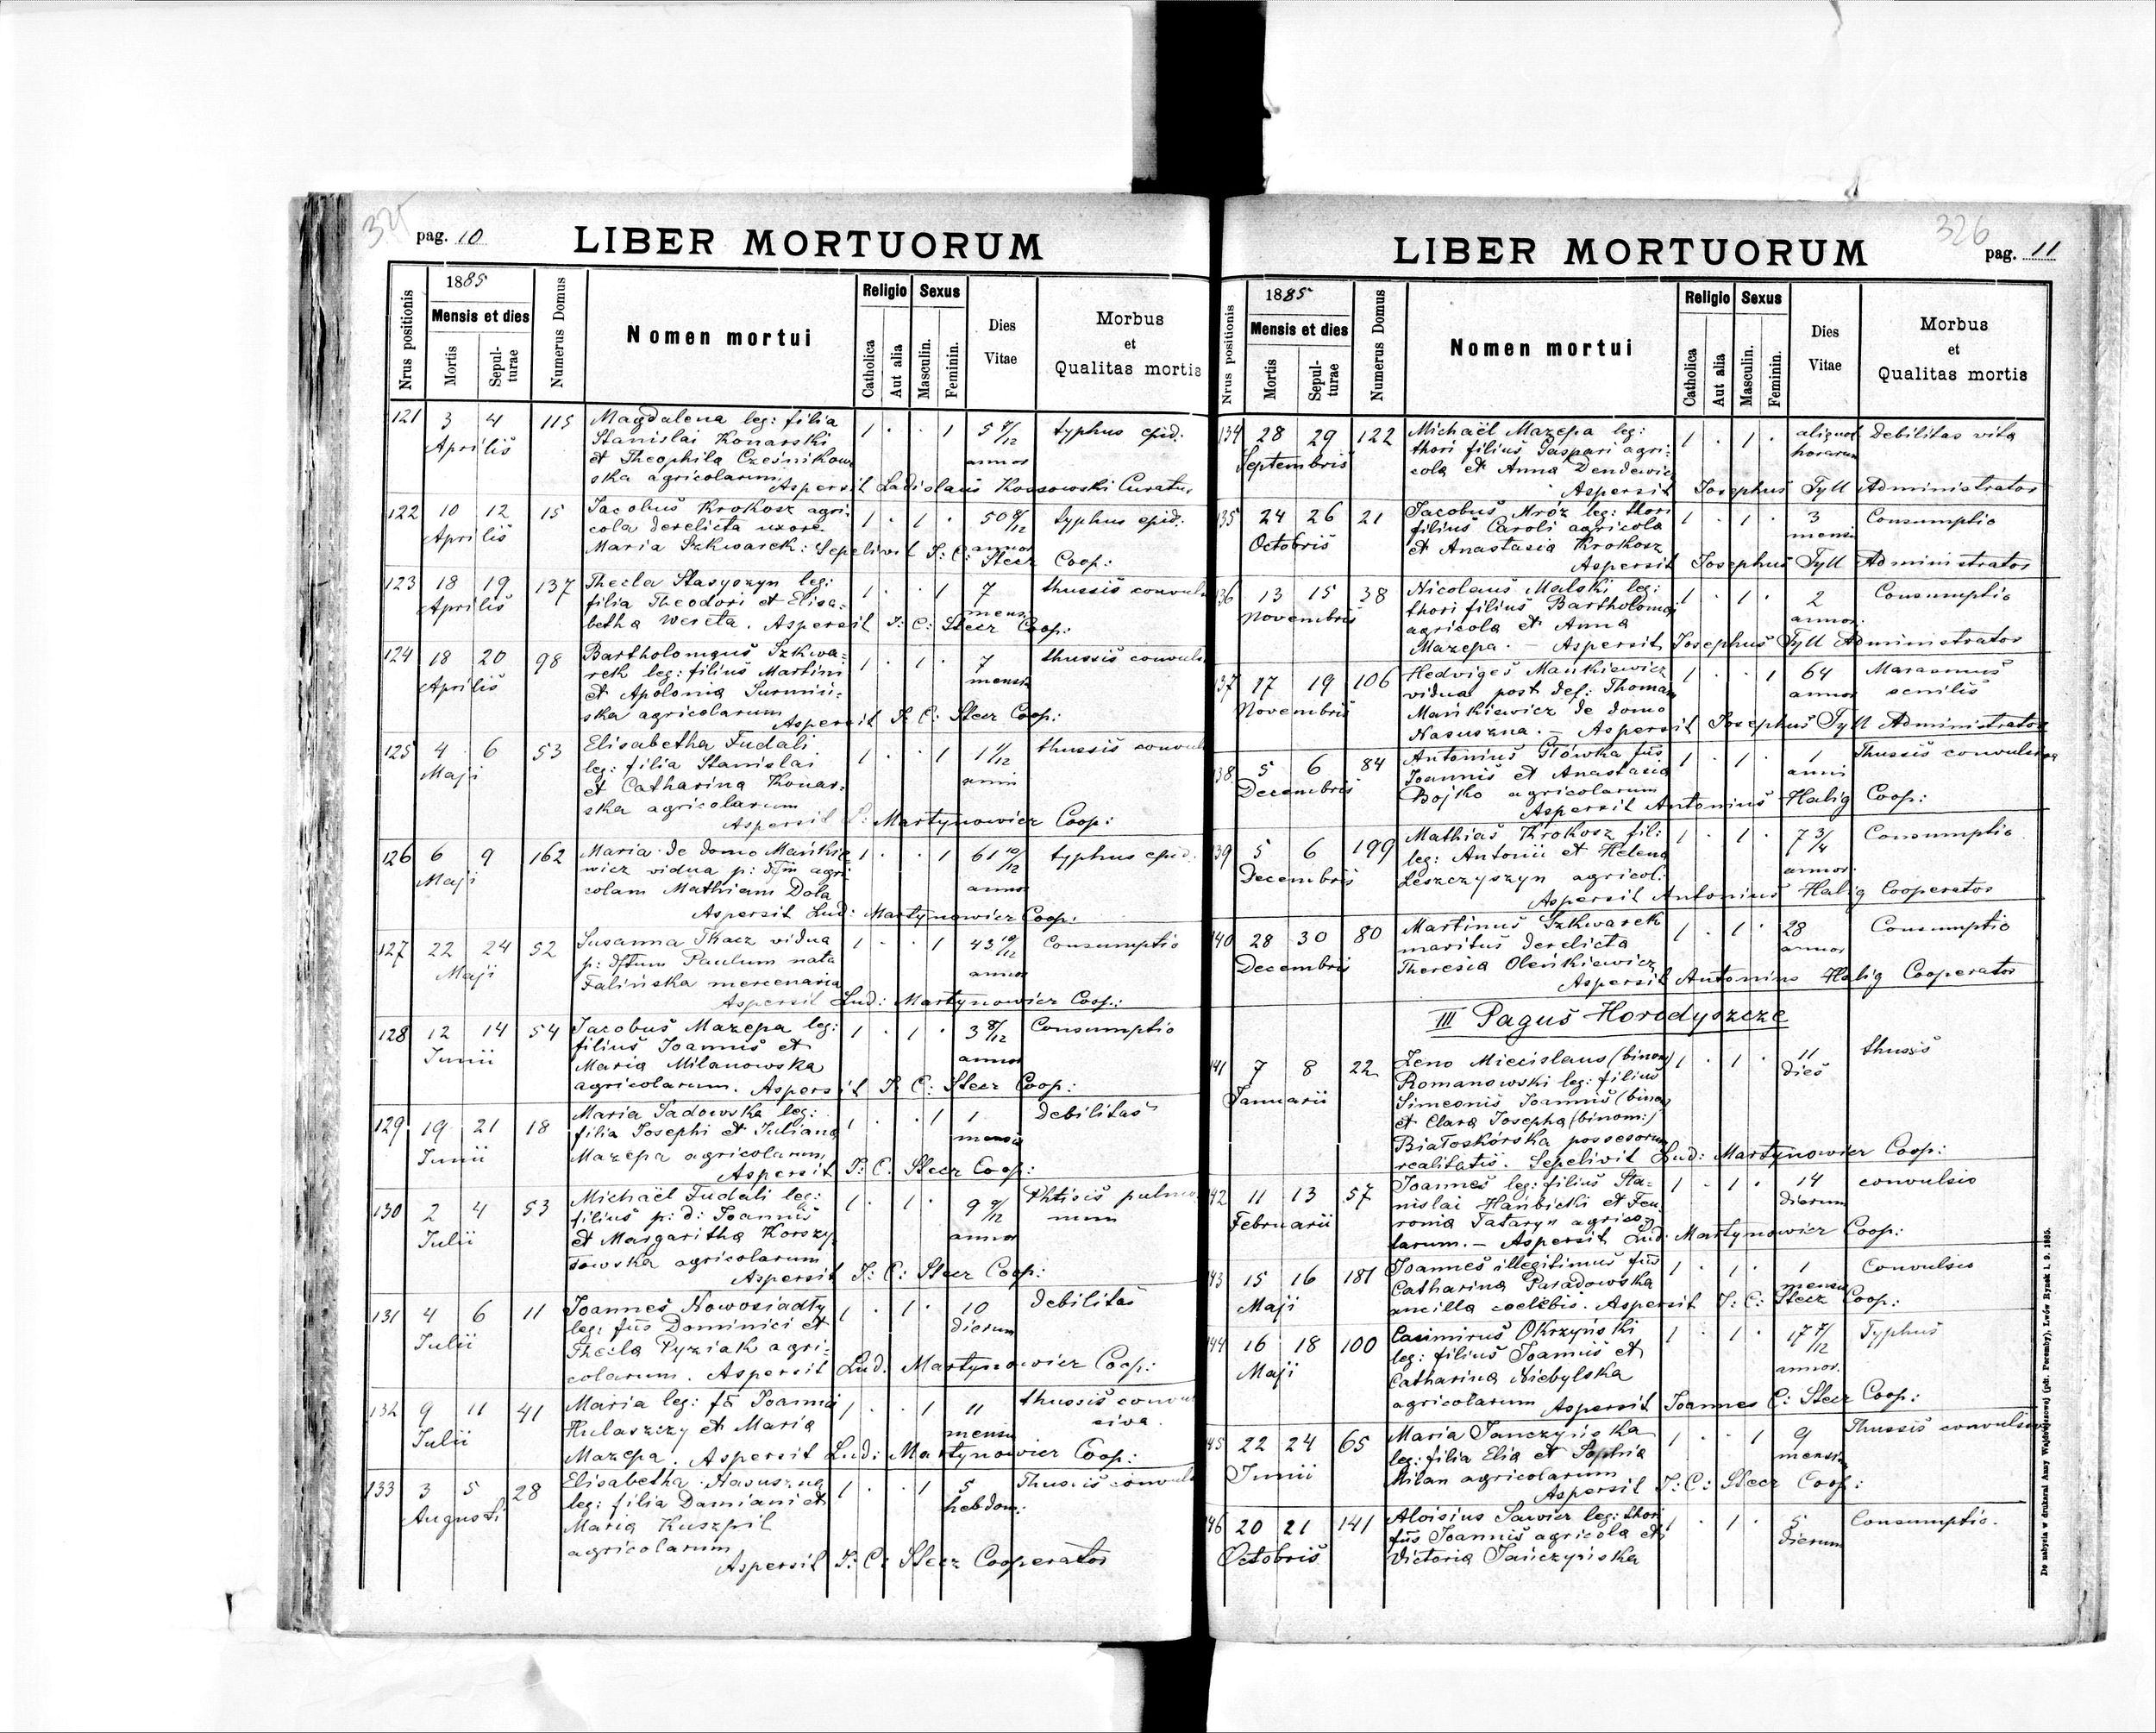 325
pag. 10
LIBER MORTUORUM
Nrus positionis
1885
Mensis et dies
Mortis
Sepulturae
Numerus Domus
Nomen mortui
Religio
Catholica
Aut alia
Sexus
Masculin.
Feminin.
Dies Vitae
Morbus et Qualitas mortis
121 3 4 115 Magdalena leg: filia 1 . . 1 5 typhus epid:
Aprilis Stanislai Konarski annor
et Theophila Cześnikow
ska agricolarum Aspersit Ladislaus Kossowski Curatus
122 10 12 15 Jacobus Krokosz agri- 1 . 1 . 50 typhus epid:
Aprilis cola derelicta uxore annor
Maria Szkwarek: Sepelivit J: C: Stecz Coop:
123 18 19 137 Thecla Stasyszyn leg: 1 . . 1 7 thussis convul
Aprilis filia Theodori et Elisa= mens
betha Wereta. Aspersit J: C: Stecz Coop:
124 18 20 98 Bartholomeus Szkwa= 1 . 1 . 7 thussis convuls
Aprilis rek leg: filius Martini mensis
et Apolonia Surmiń=
ska agricolarum Aspersit J: C: Stecz Coop:
125 4 6 53 Elisabetha Fudali 1 . . 1 1 thussis convul
Maji leg: filia Stanislai anni
et Catharina Konar=
ska agricolarum
Aspersit L: Martynowicz Coop:
126 6 9 162 Maria de domo Mańkie= 1 . . 1 61 10/12 typhus epid.
Maji wicz vidua p: dftm agri annor
colam Mathiam Dola
Aspersit Lud: Martynowicz Coop:
127 22 24 52 Susanna Tkacz vidua 1 . . 1 43 10/12 Consumptio
Maji p: dftum Paulum nata annor
Falińska mercenaria
Aspersit Lud: Martynowicz Coop:
128 12 14 54 Jacobus Mazepa leg: 1 . 1 . 3 8/12 Consumptio
Junii filius Joannis et annor
Maria Milanowska
agricolarum. Aspersit J: C: Stecz Coop:
129 19 21 18 Maria Sadowska leg: 1 . . 1 1 Debilitas
Junii filia Josephi et Juliana mensis
Mazepa agricolarum,
Aspersit J: C: Stecz Coop:
130 2 4 53 Michaël Fudali leg: 1 . 1 . 9 Phtisis pulmo
Julii filius p: d: Joannis annor num
et Margaritha Korszy=
łowska agricolarum
Aspersit J: C: Stecz Coop:
131 4 6 11 Joannes Nowosiadły 1 . 1 . 10 Debilitas
Julii leg: fus Dominici et dierum
Thecla Pyziak agri=
colarum. Aspersit Lud: Martynowicz Coop:
132 9 11 41 Maria leg: fa Joannis 1 . . 1 11 thussis convul
Julii Hulaszczy et Maria mensis siva.
Mazepa. Aspersit Lud: Martynowicz Coop:
133 3 5 28 Elisabetha Nasuszna 1 . . 1 5 Thussis convul
Augusti leg: filia Damiani et hebdom:
Maria Kuszpil
agricolarum
Aspersit J: C: Stecz Cooperator
326
LIBER MORTUORUM
pag. 11
Nrus positionis
1885
Mensis et dies
Mortis
Sepulturae
Numerus Domus
Nomen mortui
Religio
Catholica
Aut alia
Sexus
Masculin.
Feminin.
Dies Vitae
Morbus et Qualitas mortis
134 28 29 122 Michaël Mazepa leg: 1 . 1 . aliquot Debilitas vita
Septembris thori filius Gaspari agri= horarum
cola et Anna Dendewicz
Aspersit Josephus Tyll Administrator
135 24 26 21 Jacobus Mróz leg: thori 1 . 1 . 3 Consumptio
Octobris filius Caroli agricola mensi
et Anastasia Krokosz
Aspersit Josephus Tyll Administrator
136 13 15 38 Nicolaus Malski leg: 1 . 1 . 2 Consumptio
Novembris thori filius Bartholomaj annor.
agricola et Anna
Mazepa. — Aspersit Josephus Tyll Administrator
137 17 19 106 Hedviges Mańkiewicz 1 . . 1 64 Marasmus
Novembris vidua post def: Thomam annor senilis
Mańkiewicz de domo
Nasuszna. — Aspersit Josephus Tyll Administrator
138 5 6 84 Antonius Główka fus 1 . 1 . 1 Thussis convulsiva
Decembris Joannis et Anastasia anni
Bojko agricolarum
Aspersit Antonius Halig Coop:
139 5 6 199 Mathias Krokosz fil: 1 . 1 . 7 3/4 Consumptio
Decembris leg: Antonii et Helena annor.
Leszczyszyn agricol:
Aspersit Antonius Halig Cooperator
140 28 30 80 Martinus Szkwarek 1 . 1 . 28 Consumptio
Decembris maritus derelicta annor
Theresia Oleńkiewicz
Aspersit Antonius Halig Cooperator
III Pagus Horodyszcze
141 7 8 22 Zeno Miecislaus (binom) 1 . 1 . 11 thussis
Januarii Romanowski leg: filius dies
Simeonis Joannis (binom
et Clara Josepha (binom:)
Białoskórska possesorum
realitatis. Sepelivit Lud: Martynowicz Coop:
142 11 13 57 Joannes leg: filius Sta= 1 . 1 . 14 convulsio
Februarii nislai Hańbicki et Feu dierum
ronia Tataryn agrico=
larum. — Aspersit Lud: Martynowicz Coop:
143 15 16 181 Joannes illegitimus fus 1 . 1 . 1 Convulsio
Maji Catharina Paradowska mensis
ancilla coelebis. Aspersit J: C: Stecz Coop:
144 16 18 100 Casimirus Okrzyński 1 . 1 . 17 7/12 Typhus
Maji leg: filius Joannis et annor.
Catharina Niebylska
agricolarum Aspersit Joannes C: Stecz Coop:
145 22 24 65 Maria Janczyńska 1 . . 1 9 Thussis convulsiva
Junii leg: filia Elia et Sophia mensis
Milan agricolarum
Aspersit J: C: Stecz Coop:
146 20 21 141 Aloisius Sawicz leg: thori 1 . 1 . 5 Consumptio.
Octobris fus Joannis agricola et dierum
Victoria Jańczyńska
Do nabycia w drukarni Anny Wajdowiczowej (ptr. Poremby), Lwów Rynek l. 9. 1885.